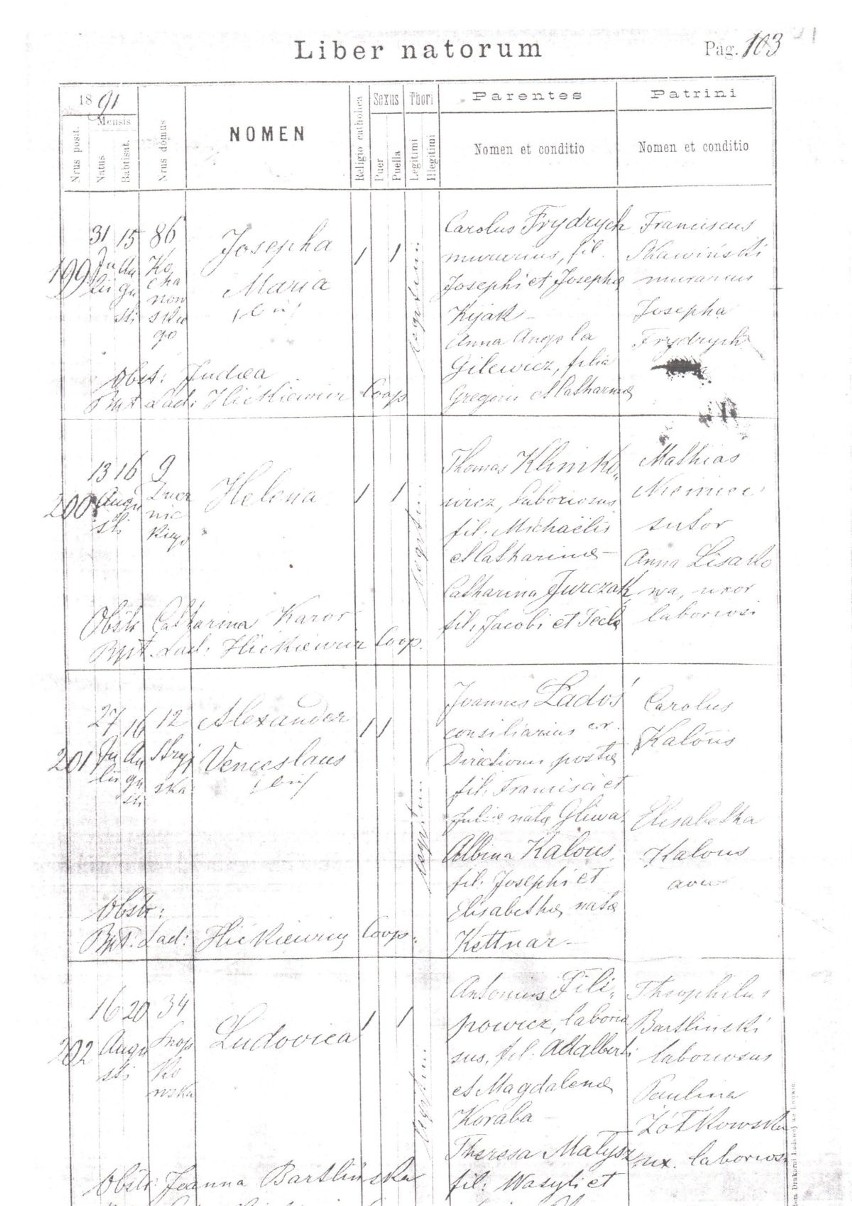 Liber natorum
Pag. 103
1891
Mensis
Nrus posit.
Natus
Batisat.
Nrus domus
NOMEN
Religio catholica
Sexus
Puer
Puella
Thori
Legitimi
Illegitimi
Parentes
Nomen et conditio
Patrini
Nomen et conditio
199
31
Ju
lii
15
Au
gu
sti
86
Ko
cha
now
skie
go
Josepha
Maria
1
1
legitim.
Carolus Frydrych
murarius, fil.
Josephi et Josephae
Kijak
Anna Angela
Gilewicz, filia
Gregorii et Catharinae
Franciscus
Skawiński
murarius
Josepha
Frydrych
Obst: Judaea
Bapt. Lad: Hickiewicz Coop
200
13 16
Augu
sti
9
Helena
1
1
legitim.
Thomas Klimko
wicz, laboriosus
fil. Michaëlis
et Catharinae
Catharina Jurczak
fil. Jacobi et Tecla
Mathias
Niemiec
sutor
Anna Lisako
wa, uxor
laboriosi
Obstr Catharina Karor
Bapt. Lad: Hickiewicz Coop.
201
27
Ju
lii
16
Au
gu
sti
12
Stryj
ska
Alexander
Venceslaus
1
1
legitim.
Joannes Ladoś
consiliarius
Directionis postae
fil. Francisci et
Juliae nata Gliwa
Albina Kalous
fil. Josephi et
Elisabethae nata
Kettnar
Carolus
Kalous
Elisabetha
Kalous
avia
Obstr:
Bapt. Lad: Hickiewicz Coop.
202
16 20
Augu
sti
34
Snop
ko
wska
Ludovica
1
1
legitim.
Antonius Fili
powicz, laborio
sus, fil. Adalberti
et Magdalenae
Koraba
Theresa Malysz
fil: Wasyli et
Theophilus
Bartliński
laboriosus
Paulina
Żółkowska
ux. laboriosi
Obstr: Joanna Bartlińska